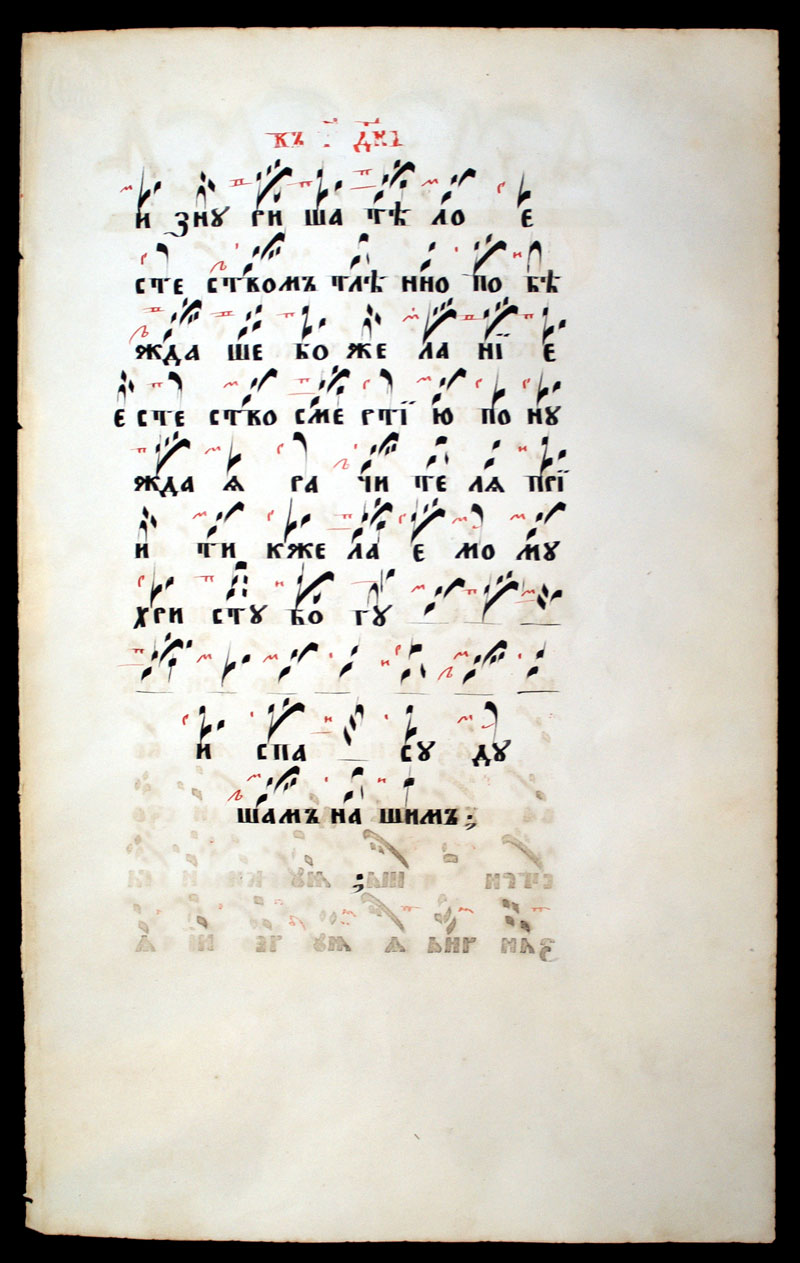 къ дн҃ь
и знꙋ ри ша тѣ ло е
сте ствомъ тлѣ нно по бѣ
жда ше бо же ла нї е
е сте ство сме ртї ю по нꙋ
жда ѧ ра чи те ля прї
и ти кже ла е мо мꙋ
хри стꙋ бо гꙋ
и спа сꙋ дꙋ
шамъ на шимъ ;
;